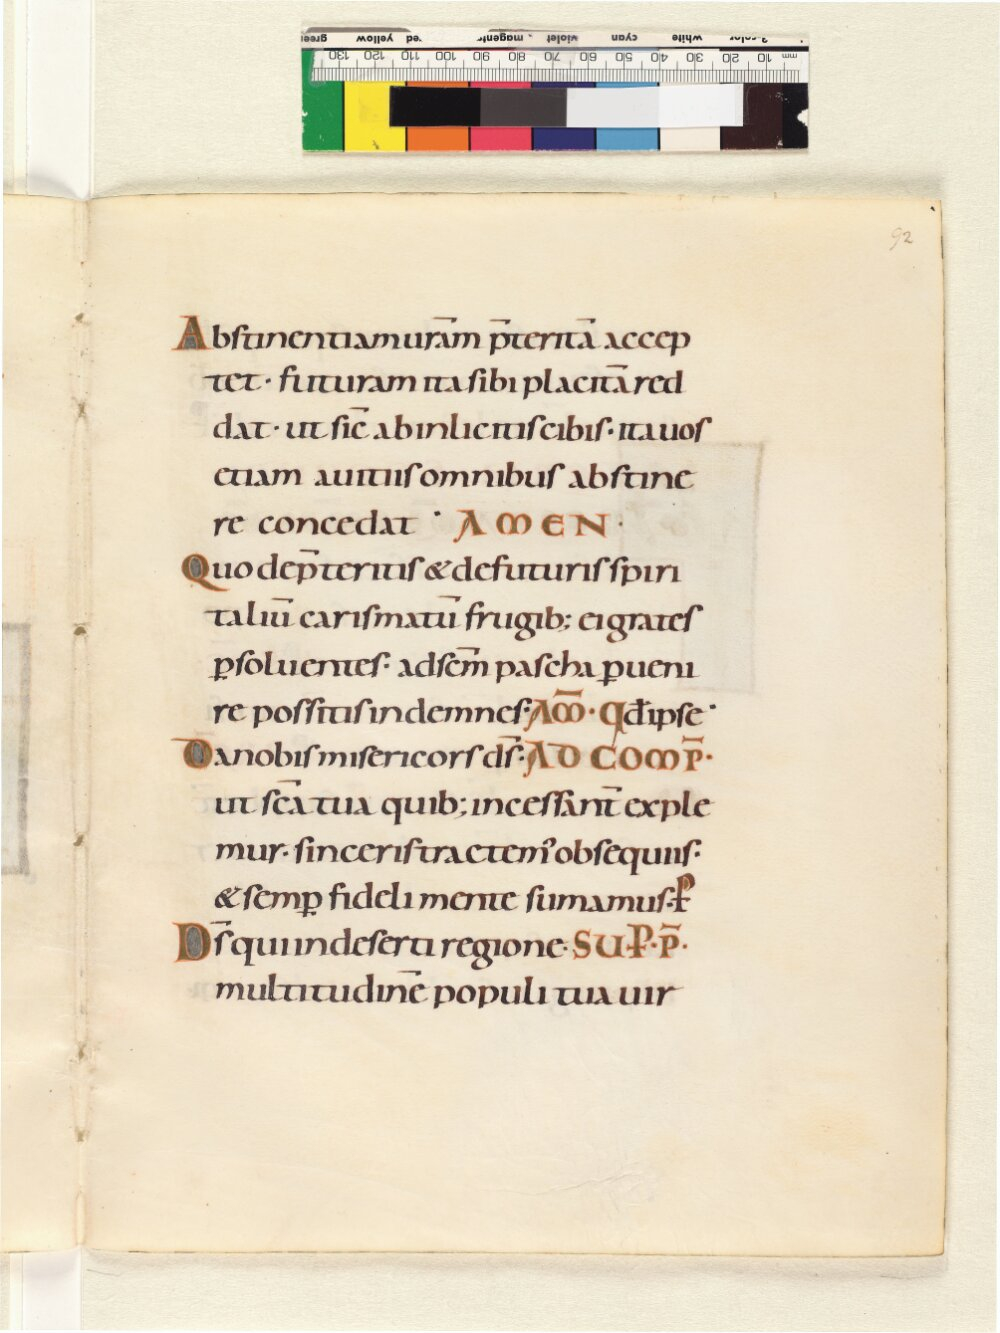 green yellow red magenta violet cyan white 3-color
130 120 110 100 90 80 70 60 50 40 30 20 10 mm
92
Abstinentiam uram̄ p̄teritā accep
tet · futuram ita sibi placitā red
dat · ut sic̄ ab inlicitis cibis · ita uos
etiam a uitiis omnibus abstine
re concedat · AMEN ·
Quo de p̄teritis & de futuris spiri
taliū carismatū frugib; ei grates
ꝑsoluentes · ad sc̄m pascha ꝑueni
re possitis indemnes · AM̄ · qđ ipse ·
Da nobis misericors ds̄ · AD COMP̄ ·
ut sc̄a tua quib; incessant̄ exple
mur · sinceris tractem᷒ obsequiis ·
& semꝑ fideli mente sumamus · ꝑ
Ds̄ qui in deserti regione · SUꝐ · P̄ ·
multitudinē populi tua uir